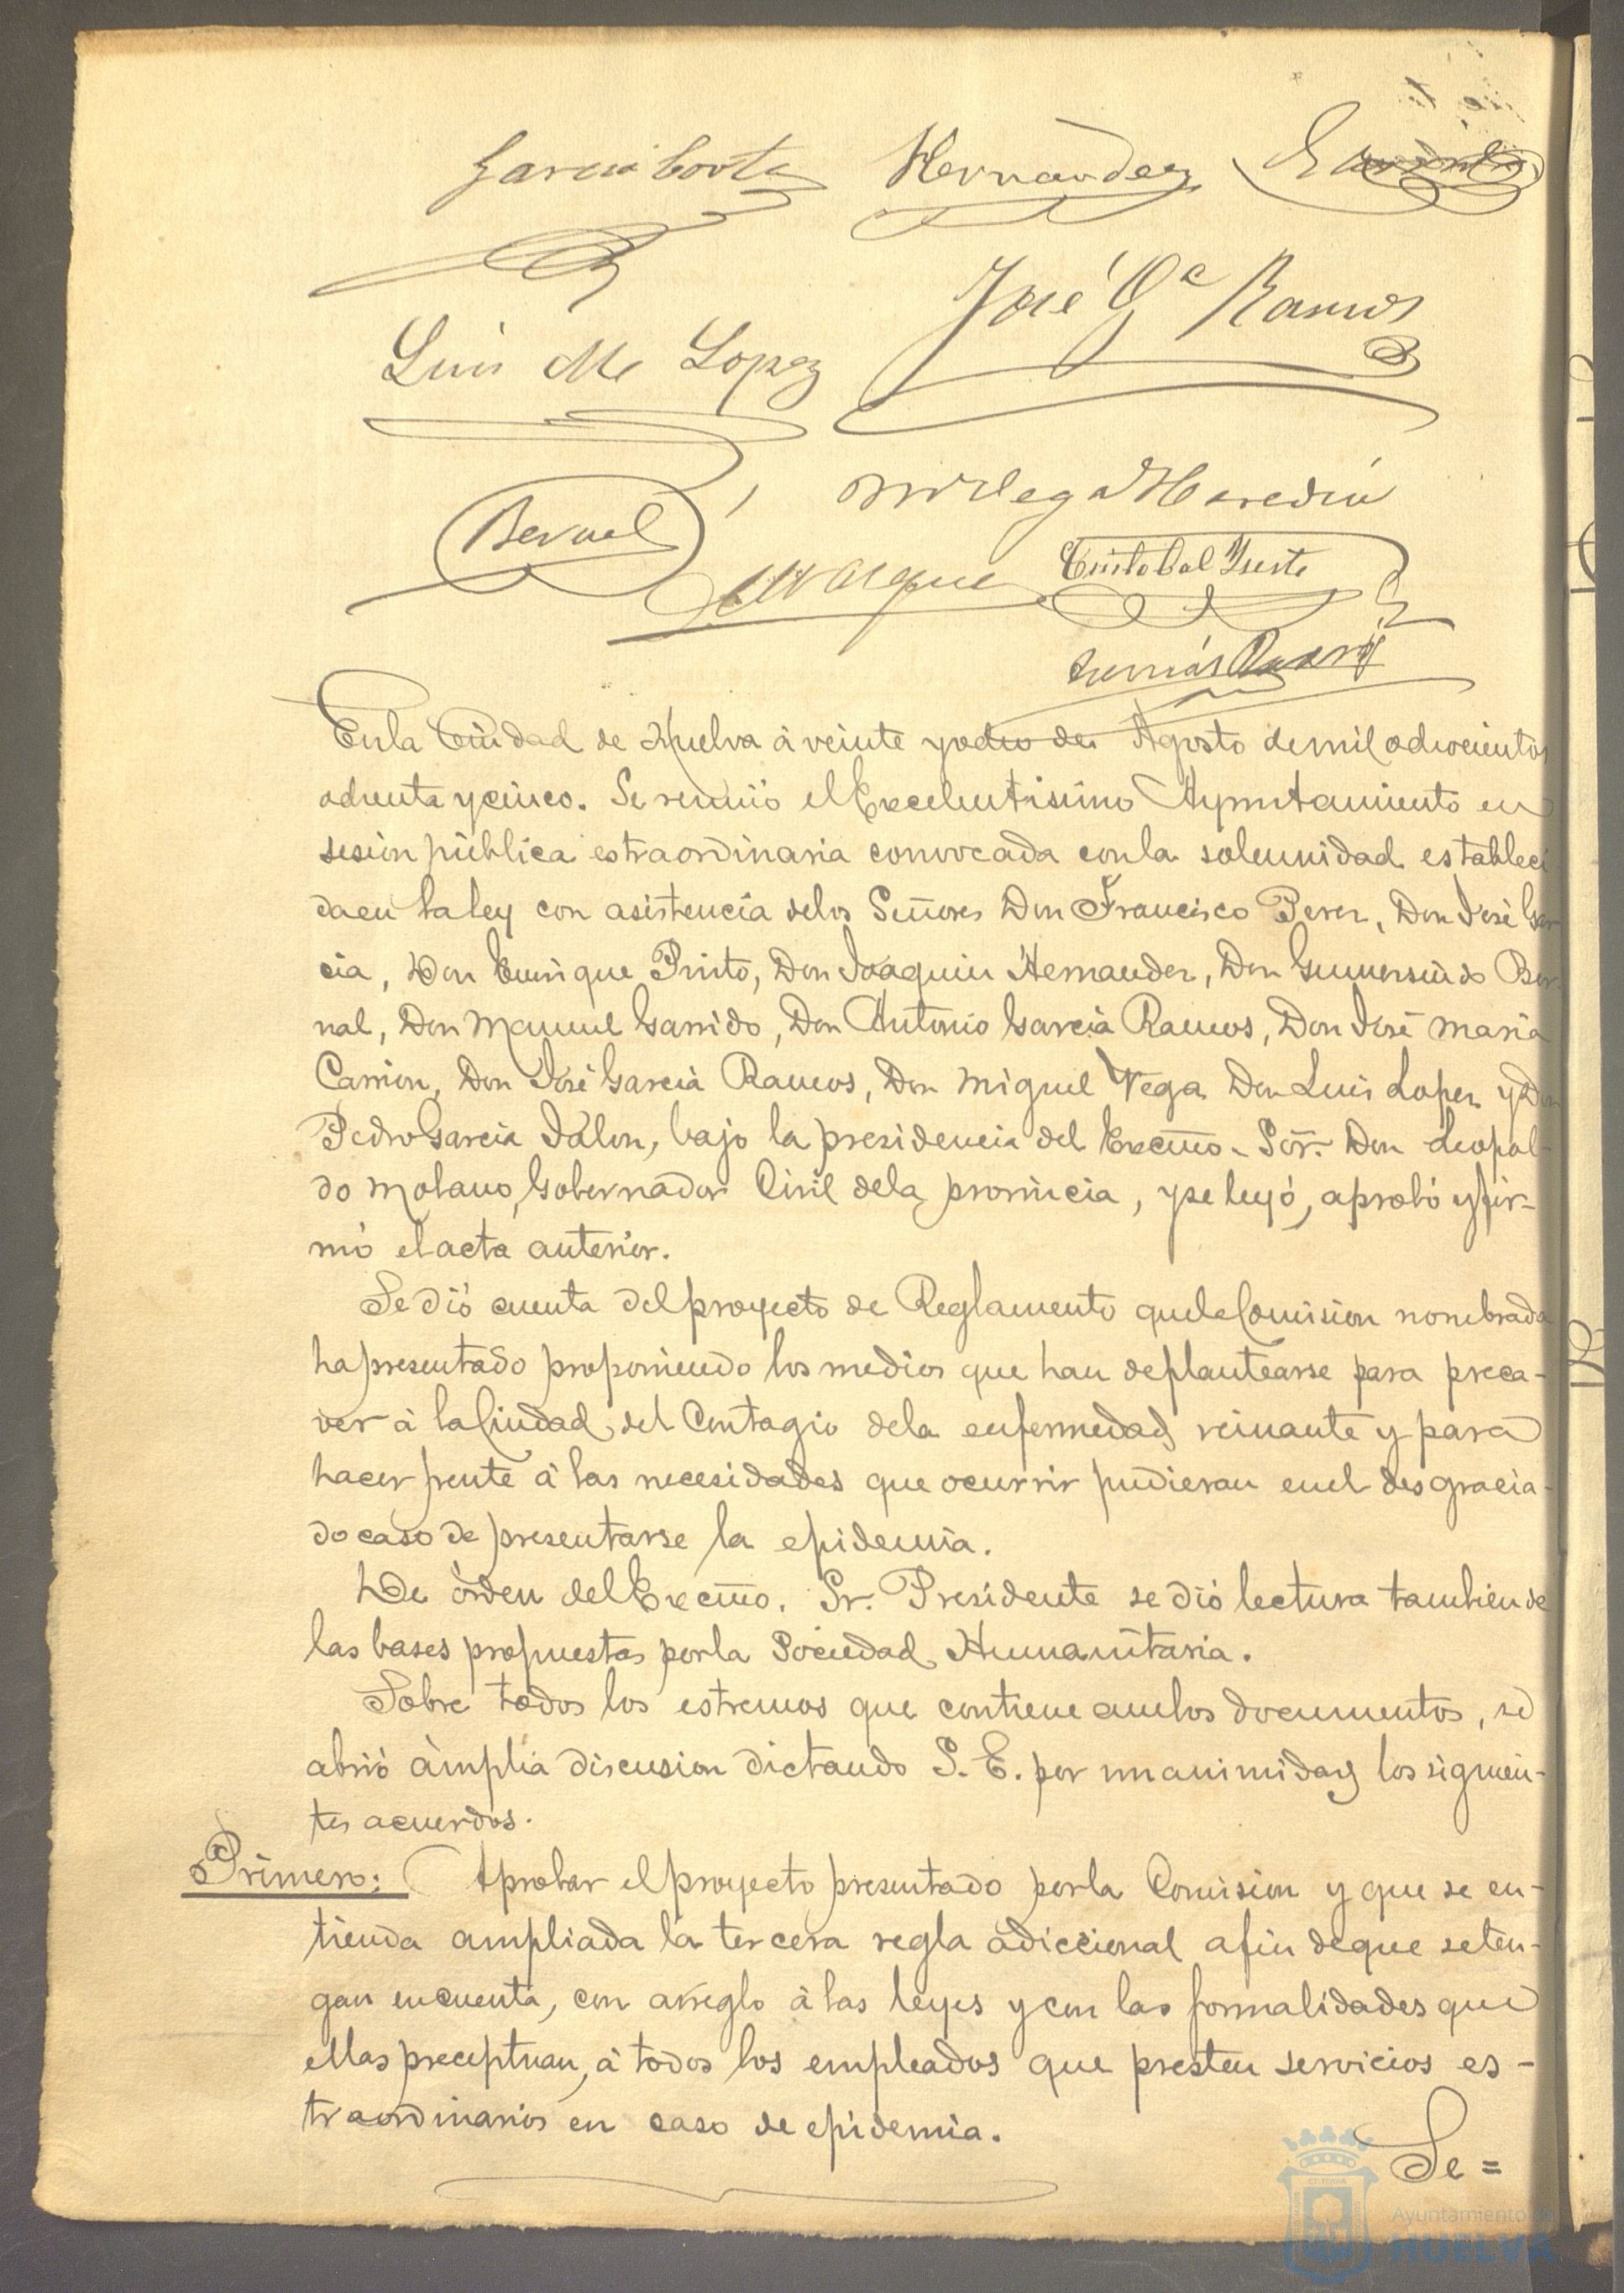 Garcia Cortes Hernandez
José Gª Ramos
Luis M Lopez
Vega Heredia
Bernal
Cristobal Yuste
Tomás
En la Ciudad de Huelva á veinte y ocho de Agosto de mil ochocientos
ochenta y cinco. Se reunió el Excelentisimo Ayuntamiento en
sesion pública estraordinaria convocada con la solemnidad estableci
da en la ley con asistencia de los Señores Don Francisco Perez, Don José Gar
cia, Don Enrique Pinto, Don Joaquin Hernandez, Don Gumersindo Ber
nal, Don Manuel Garrido, Don Antonio Garcia Ramos, Don José Maria
Carrion, Don José Garcia Ramos, Don Miguel Vega Don Luis Lopez y Don
Pedro Garcia Jalon, bajo la presidencia del Excmo. Sor. Don Leopol-
do Molano, Gobernador Civil de la provincia, y se leyó, aprobó y fir-
mó el acta anterior.
Se dió cuenta del proyecto de Reglamento que la Comision nombrada
ha presentado proponiendo los medios que han de plantearse para preca-
ver á la Ciudad del Contagio de la enfermedad reinante y para
hacer frente á las necesidades que ocurrir pudieran en el desgracia-
do caso de presentarse la epidemia.
De órden del Excmo. Sr. Presidente se dió lectura tambien de
las bases propuestas por la Sociedad Humanitaria.
Sobre todos los estremos que contiene ambos documentos, se
abrió ámplia discusion dictando S. E. por unanimidad los siguien-
tes acuerdos.
Primero: Aprobar el proyecto presentado por la Comision y que se en-
tienda ampliada la tercera regla adiccional a fin de que se ten-
gan en cuenta, con arreglo á las leyes y con las formalidades que
ellas preceptuan, á todos los empleados que presten servicios es-
traordinarios en caso de epidemia.
Se=
Ayuntamiento de
HUELVA